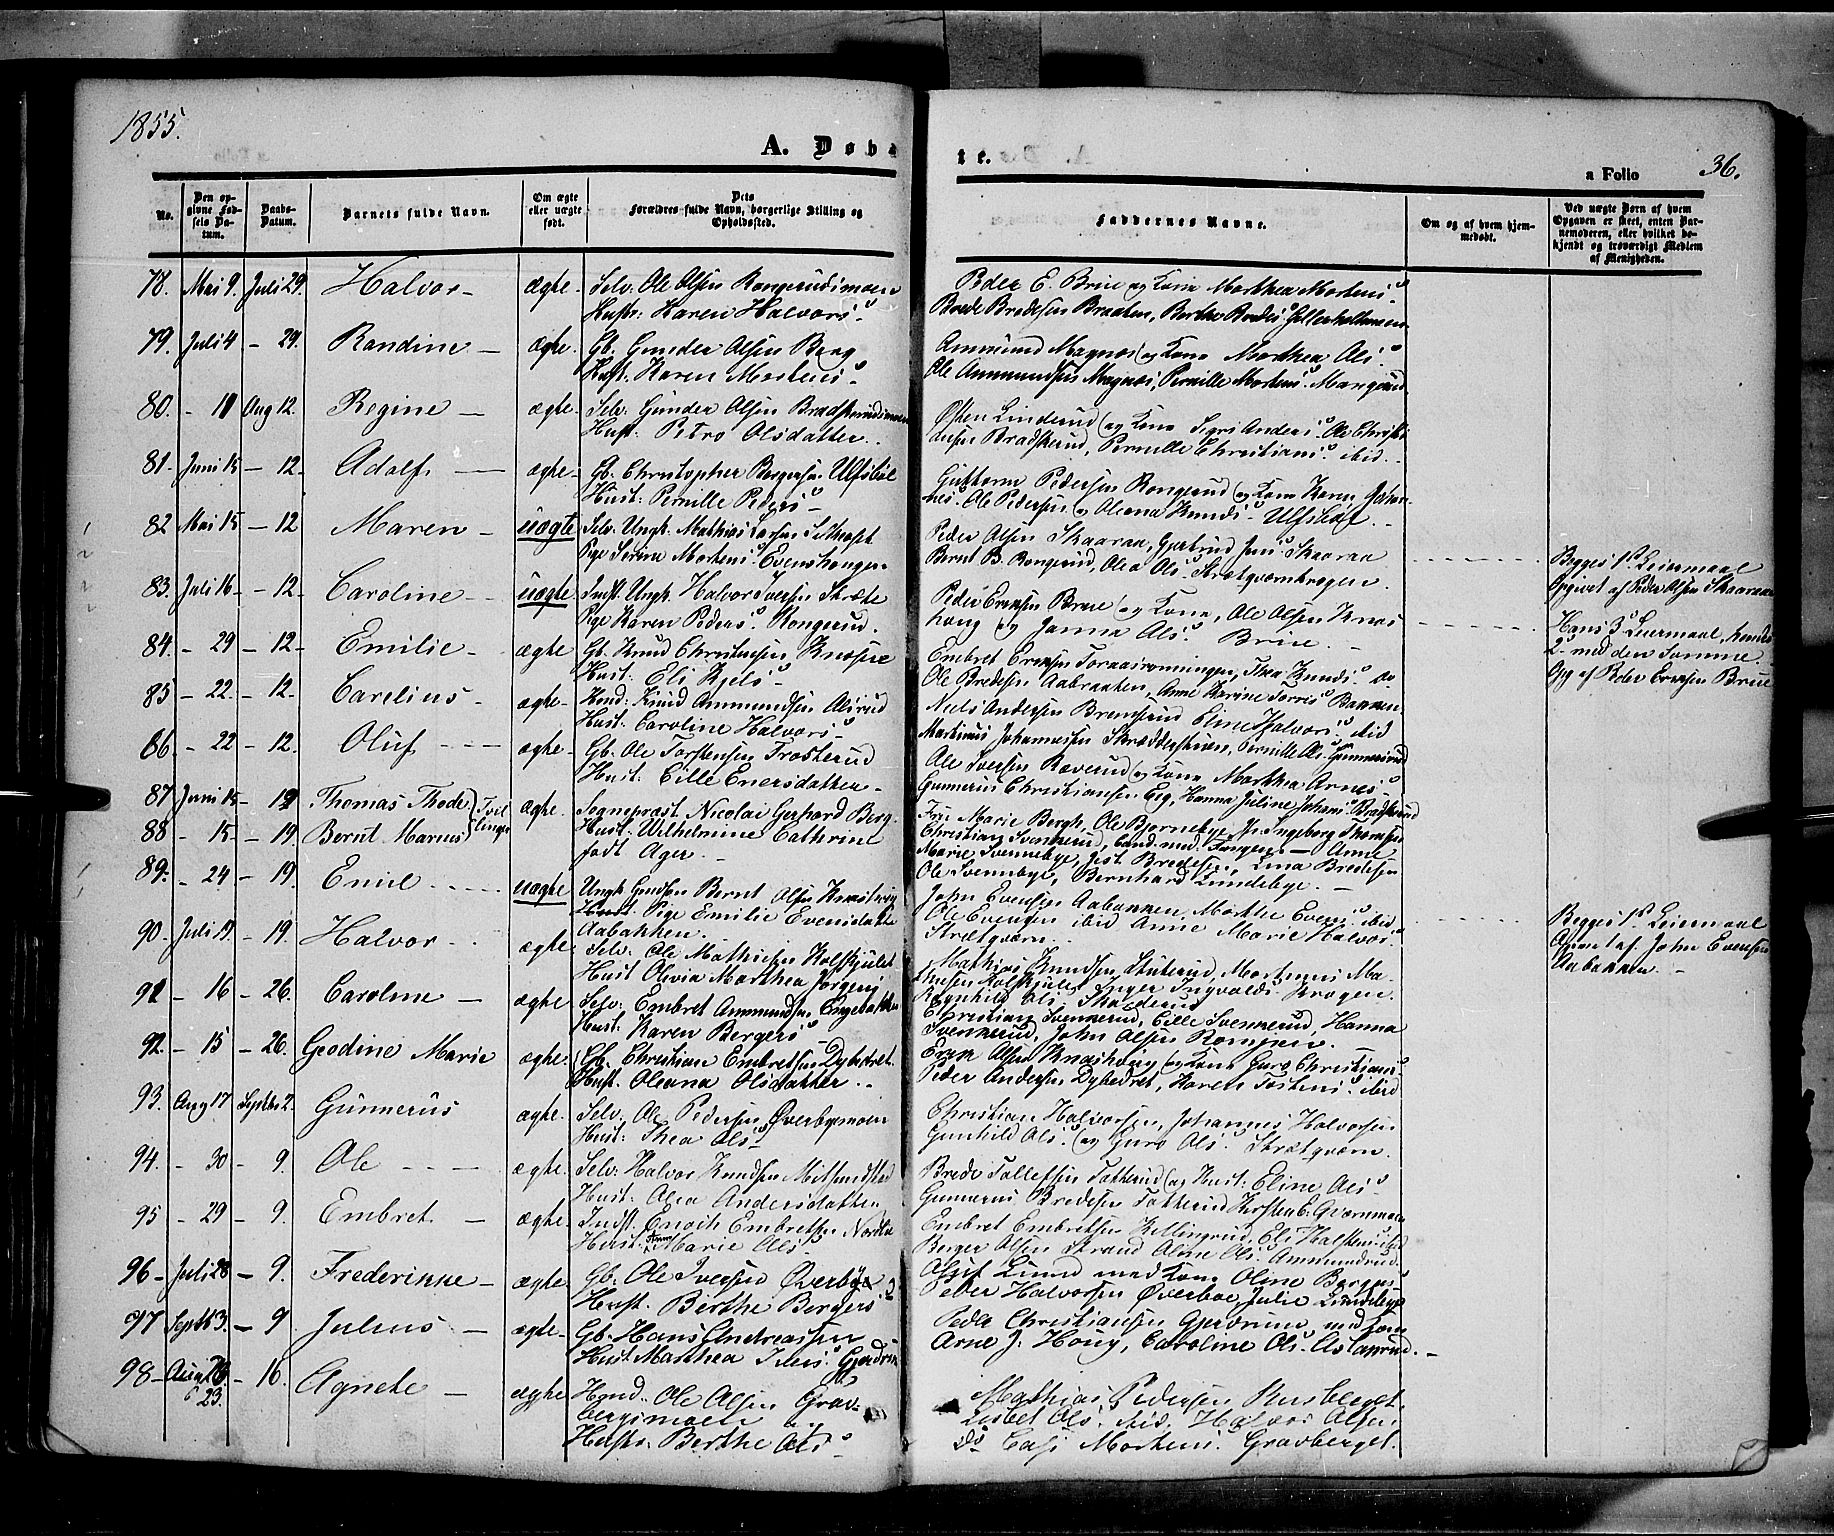 1855.
A. Døbte.
a Folio 36.
No.
Den opgivne Fødsels Datum.
Daabs-Datum.
Barnets fulde Navn.
Om ægte eller uægte født.
Dets Forældres fulde Navn, borgerlige Stilling og Opholdssted.
Faddernes Navne.
Om og af hvem hjemmedøbt.
Ved uægte Børn af hvem Opgaven er skeet, enten Barnemoderen, eller hvilket bekjendt og troværdigt Medlem af Menigheden.
78. Mai 9. Juli 29. Halvor ægte. Selv: Ole Olsen Rongerudsmoen
Hustr: Karen Halvors:
Peder E. Brue og Kone Marthea Mortens:
Brede Bredesen Braaten, Berthe Bredes:
79. Juli 4 - 29. Randine ægte. Gb. Gunder Olsen Berg
Hust: Karen Mortens:
Ammund Magnos og Kone Marthea Ols:
Ole Ammundsen Magnos, Pernille Mortens: Mangrud
80. - 11 Aug 12. Regine ægte. Selv: Gunder Olsen Bradskerudsmoen
Hust: Petro Olsdatter.
Østen Linderud og Kone Sigri Anders: Ole Christi
ansen Bradskerud, Pernille Christians: ibid.
81. Juni 15 - 12. Adolf ægte. Gb. Christopher Bergersen Ulfsbøl
Hust: Pernille Peders
Guttorm Pedersen Rongerud og Kone Karen Johan-
nes. Ole Pedersen og Oleana Knuds: Ulfsbøl.
82 Mai 15 - 12 Maren uægte Selv. Ungk. Mathias Larsen
Pige Serine Mortens: Evenshaugen
Peder Olsen Skaaraa, Gjertrud Jens: Skaaraa
Bernt B. Rongerud, Olea Ols: Strætqværnkrogen.
Begges 1ste Leiermaal
Opgivet af Peder Olsen Skaaraa
83. Juli 16 - 12. Caroline uægte. Indst. Ungk. Halvor Iversen Stræte
Pige Karen Peders: Rongerud.
Peder Evensen Brue og Kone, Ole Olsen Knas
houg og Janna Ols: Brue.
Hans 3die Leiermaal, hendes
2. med den Samme.
Opg af Peder Evensen Brue
84. - 29 - 12. Emilie ægte Gb. Knud Christensen
Hust: Eli Kjels
Embret Evensen
Ole Bredesen Aabraaten, Anne Karine Torris: Bakken
85 - 22. - 12. Carelius ægte. Hmd: Knud Ammundsen Olsrud
Hust: Caroline Halvors:
Niels Andersen Bremsrud Eline Halvors: ibid
Martinus Johannesen Skrædderstuen, Pernille Ols: Gunnersrud
86. - 22 - 12. Oluf ægte. Gb. Ole Torstensen Frosterud
Hust: Eille Enersdatter.
Ole Iversen Raverud og Kone Marthea Arnes
Gunnerus Christiansen Eeg, Hanna Juline Johans: Bradskerud
87 Juni 15 - 19 Thomas Thode Tvil
88 - 15 - 19 Bernt Marnus linger ægte. Sognepræst Nicolai Gerhard Berg.
Hust: Wilhelmine Cathrine
født Ager.
Fru Marie Bergh, Ole Bjørnebye Jfr. Ingeborg Thomsen
Christian Svenkerud, Cand. med. Fangen Anne
Marie Svennebye, Jost. Bredesen, Lina Bredesen
Ole Svennebye, Bernhard Lundebye.
89. - 24 - 19. Emil uægte Ungk. Gmdsn Bernt Olsen Knashoug
Pige Emilie Evensdatter
Aabakken.
John Evensen Aabakken, Marthe Evens: ibid
Ole Evensen ibid Anne Marie Halvors:
Strætqværn.
Begges 1ste Leiermaal
Anm! af John Evensen
Aabakken
90. Juli 19. - 19. Halvor ægte Selv. Ole Mathisen Kolfskjulet
Hust Olivia Marthea Jørgens
Mathias Knudsen Stuterud, Martinus Ma-
thisen Kolfskjulet Inger Ingvalds: Krogen.
91 - 16 - 26. Caroline ægte Selv: Embret Ammundsen Engebakken
Hust: Karen Bergers
Ragnhild Ols: Skadderud
Christian Svenkerud, Eille Svenkerud, Hanna
Svenkerud, John Olsen Rompen.
92. - 15 - 26. Geodine Marie ægte. Gb. Christian Embretsen Dybedret.
Hust. Oleana Olsdatter.
Even Olsen Knashoug og Kone Guro Christians
Peder Andersen Dybedret, Karen Tostens: ibid
93. Aug 17 Septbr 2. Gunnerus ægte. Selv. Ole Pedersen Øverbymoen
Hust: Thea Ols:
Christian Halvorsen, Johannes Halvorsen
Gunhild Ols: og Guro Ols: Strætqværn.
94. - 30 - 9. Ole ægte. Selv: Halvor Knudsen
Hust: Olea Andersdatter
Brede Tollefsen Tatterud og Hust: Eline Ols
Gunnerus Bredesen Tatterud Kirsten C. Qværnmoen
95 - 29 - 9. Embret ægte. Indst. Enoch Embretsen Nordli
Hust: Anne Marie Ols:
Embret Embretsen Killingrud, Eli Halstens: ibid
Berger Olsen Strand Oline Ols: Ammundrud.
96 - Juli 28 - 9. Frederikke ægte. Gb. Ole Iversen Øverbye
Hust. Birthe Bergers
Lund med Kone Oline Bergers
Peder Halvorsen Øverboe Julie Lundebye
97 Septb 3. - 9 Julius ægte. Gb. Hans Andreassen
Hust. Marthea Gjerdrum
Peder Christiansen Gjerdrum med Kone
Arne J. Houg, Caroline Ols:
98 - Aug 23. - 16. Agnete ægte Hmd. Ole Olsen Grav-
bergsmoen og
Hustr: Berthe Ols:
Mathias Pedersen Kusberget.
Lisbet Ols: ibid. Halvor Olsen
do Casi Mortens: Gravberget.